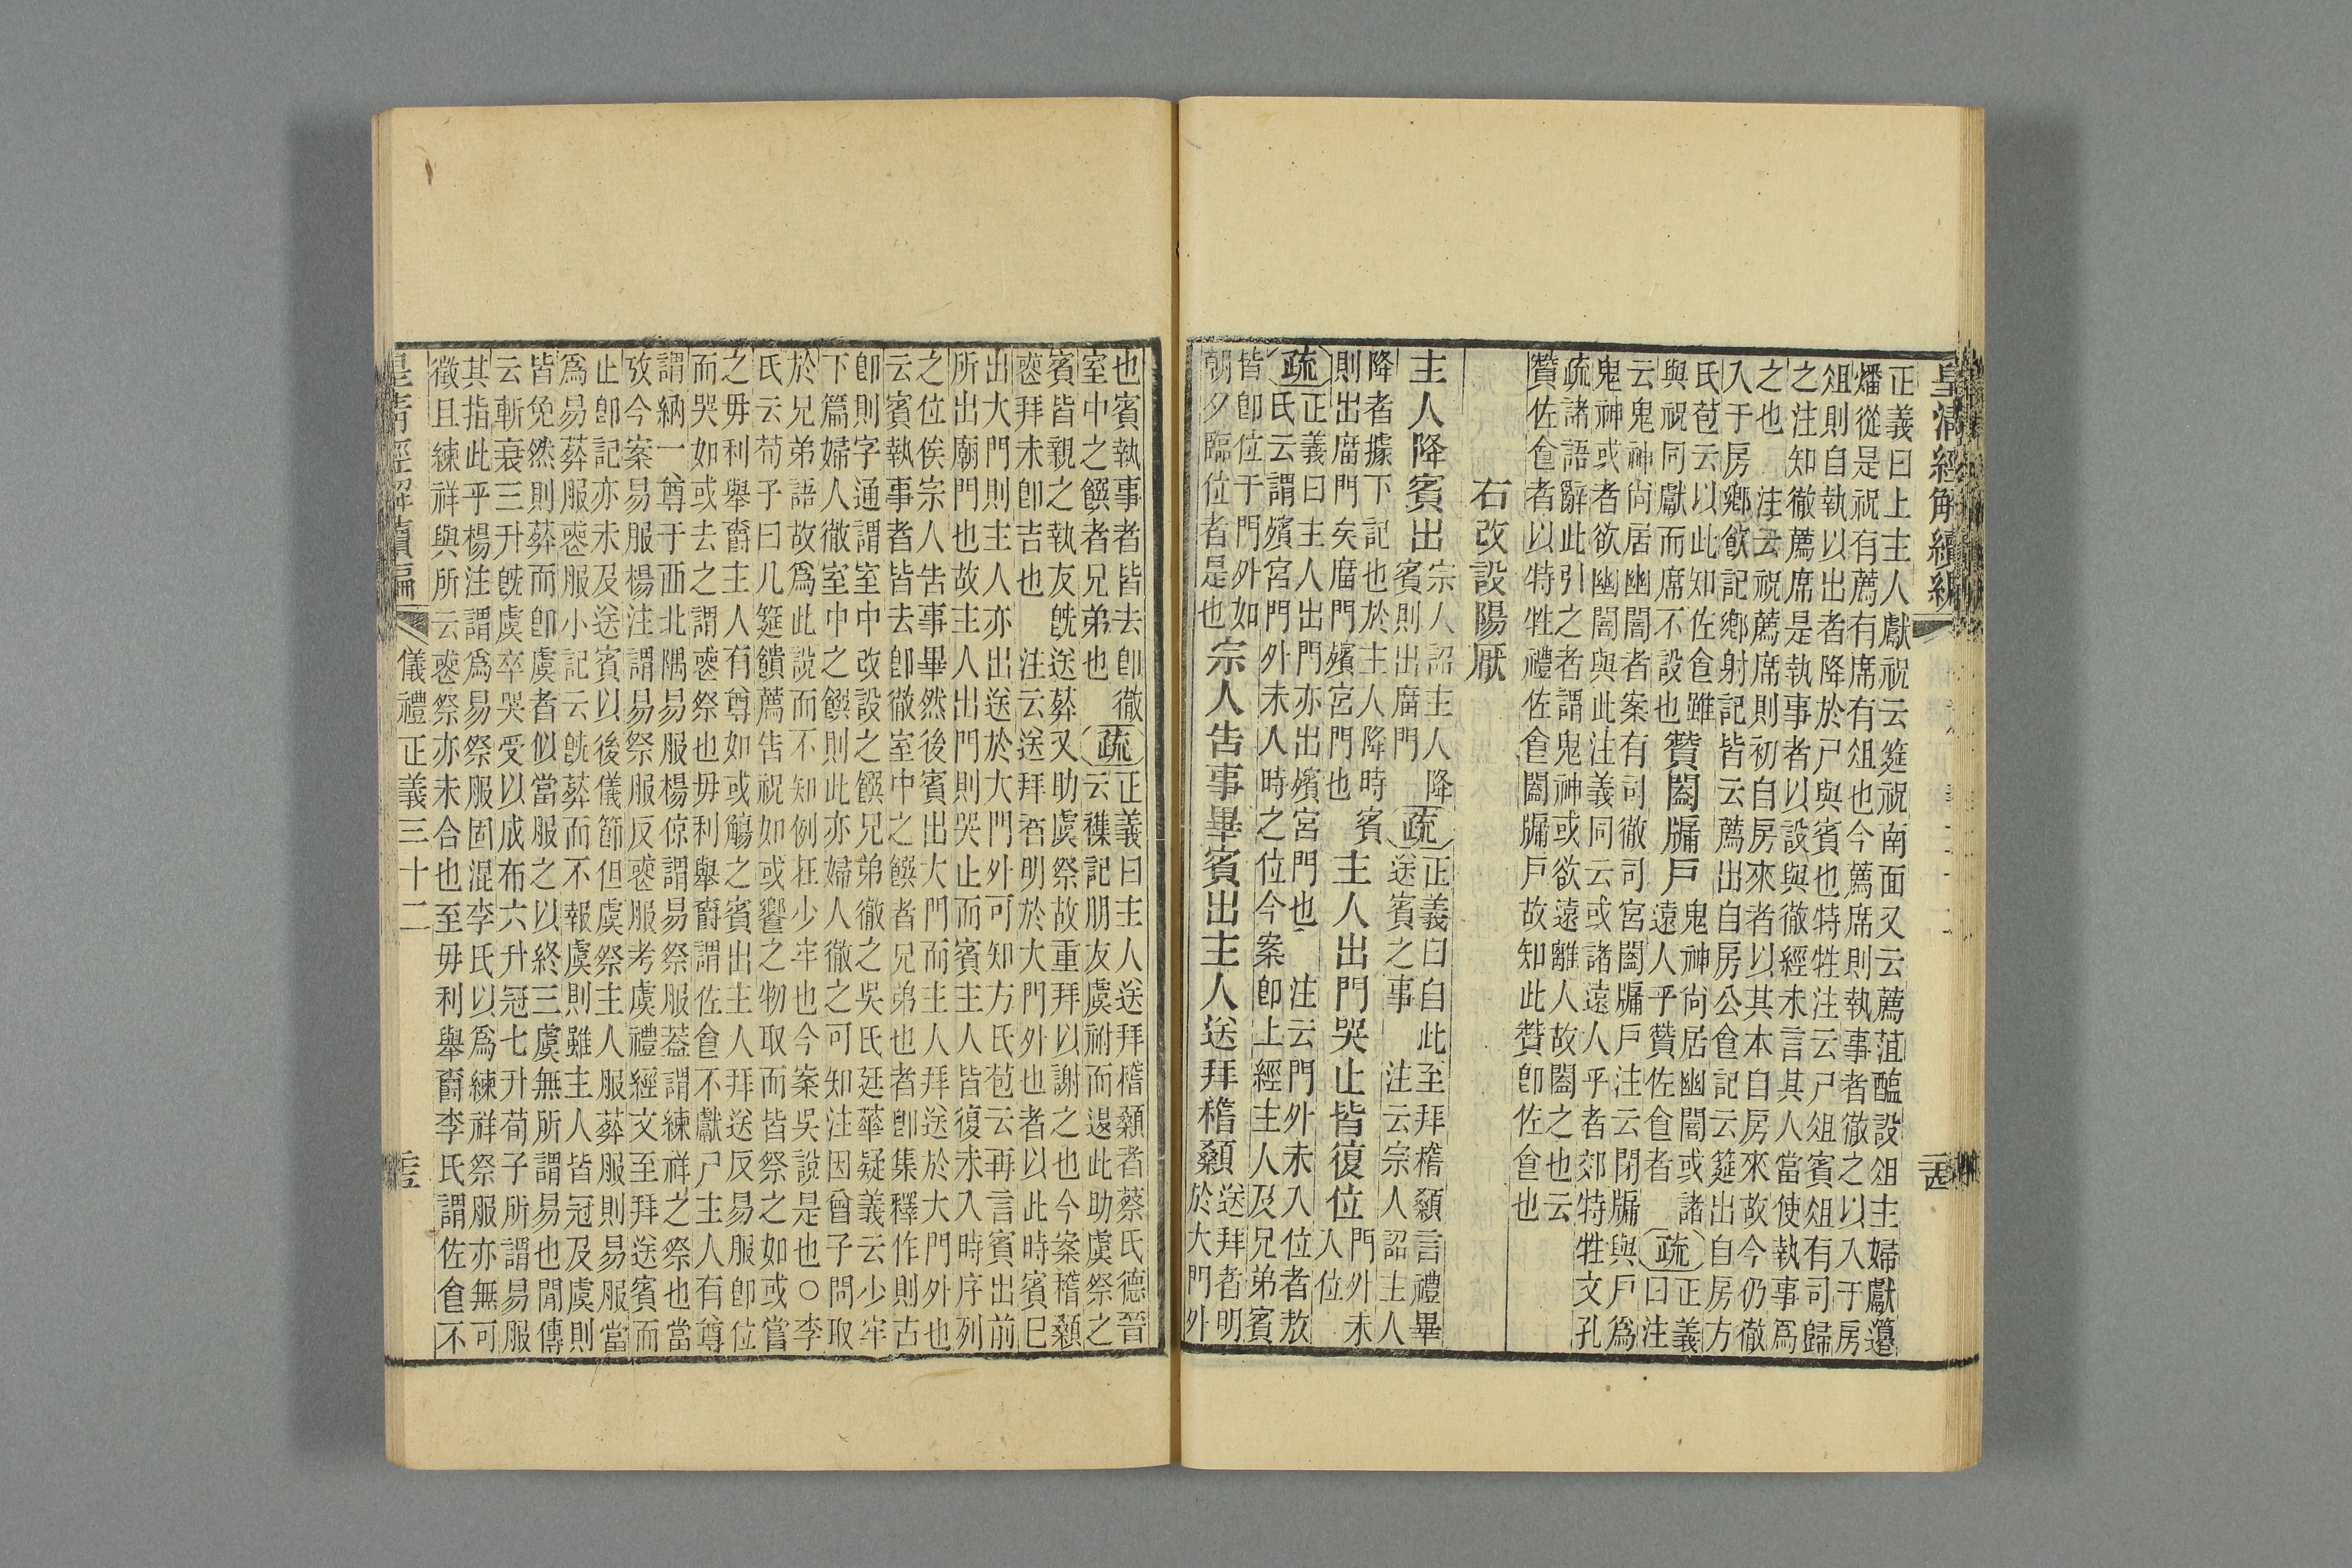 皇清經解續編
正義曰上主人獻祝云筵祝南面又云薦菹醢設俎主婦獻籩
燔從是祝有薦有席有俎也今薦席則執事者徹之以入于房
俎則自執以出者降於尸與賓也特牲注云尸俎賓俎有司歸
之注知徹薦席是執事者以設與徹經未言其人當使執事爲
之也 注云祝薦席則初自房來者以其本自房來故今仍徹
入于房鄉飲記鄉射記皆云薦出自房公食記云筵出自房方
氏苞云以此知佐食雖
與祝同獻而席不設也
贊闔牖戶
鬼神尚居幽闇或諸
遠人乎贊佐食者
疏
正義
曰注
云鬼神尚居幽闇者案有司徹司宮闔牖戶注云閉牖與戶爲
鬼神或者欲幽闇與此注義同云或諸遠人乎者郊特牲文孔
疏諸語辭此引之者謂鬼神或欲遠離人故闔之也云
贊佐食者以特牲禮佐食闔牖戶故知此贊卽佐食也
右改設陽厭
主人降賓出
宗人詔主人降
賓則出廟門
疏
正義曰自此至拜稽顙言禮畢
送賓之事 注云宗人詔主人
降者據下記也於主人降時賓
則出廟門矣廟門殯宮門也
主人出門哭止皆復位
門外未
入位
疏
正義曰主人出門亦出殯宮門也 注云門外未入位者敖
氏云謂殯宮門外未入時之位今案卽上經主人及兄弟賓
皆卽位于門外如
朝夕臨位者是也
宗人告事畢賓出主人送拜稽顙
送拜者明
於大門外
也賓執事者皆去卽徹
室中之饌者兄弟也
疏
正義曰主人送拜稽顙者蔡氏德晉
云襍記朋友虞祔而退此助虞祭之
賓皆親之執友旣送葬又助虞祭故重拜以謝之也今案稽顙
喪拜未卽吉也 注云送拜者明於大門外也者以此時賓巳
出大門則主人亦出送於大門外可知方氏苞云再言賓出前
所出廟門也故主人出門則哭止而賓主人皆復未入時序列
之位俟宗人告事畢然後賓出大門而主人拜送於大門外也
云賓執事者皆去卽徹室中之饌者兄弟也者卽集釋作則古
卽則字通謂室中改設之饌兄弟徹之吳氏廷華疑義云少牢
下篇婦人徹室中之饌則此亦婦人徹之可知注因曾子問取
於兄弟語故爲此說而不知例在少牢也今案吳說是也○李
氏云荀子曰几筵饋薦告祝如或饗之物取而皆祭之如或嘗
之毋利舉爵主人有尊如或觴之賓出主人拜送反易服卽位
而哭如或去之謂喪祭也毋利舉爵謂佐食不獻尸主人有尊
謂納一尊于西北隅易服楊倞謂易祭服葢謂練祥之祭也當
攷今案易服楊注謂易祭服反喪服考虞禮經文至拜送賓而
止卽記亦未及送賓以後儀節但虞祭主人服葬服則易服當
爲易葬服喪服小記云旣葬而不報虞則雖主人皆冠及虞則
皆免然則葬而卽虞者似當服之以終三虞無所謂易也閒傳
云斬衰三升旣虞卒哭受以成布六升冠七升荀子所謂易服
其指此乎楊注謂爲易祭服固混李氏以爲練祥祭服亦無可
徵且練祥與所云喪祭亦未合也至毋利舉爵李氏謂佐食不
皇清經解續編 儀禮正義三十二